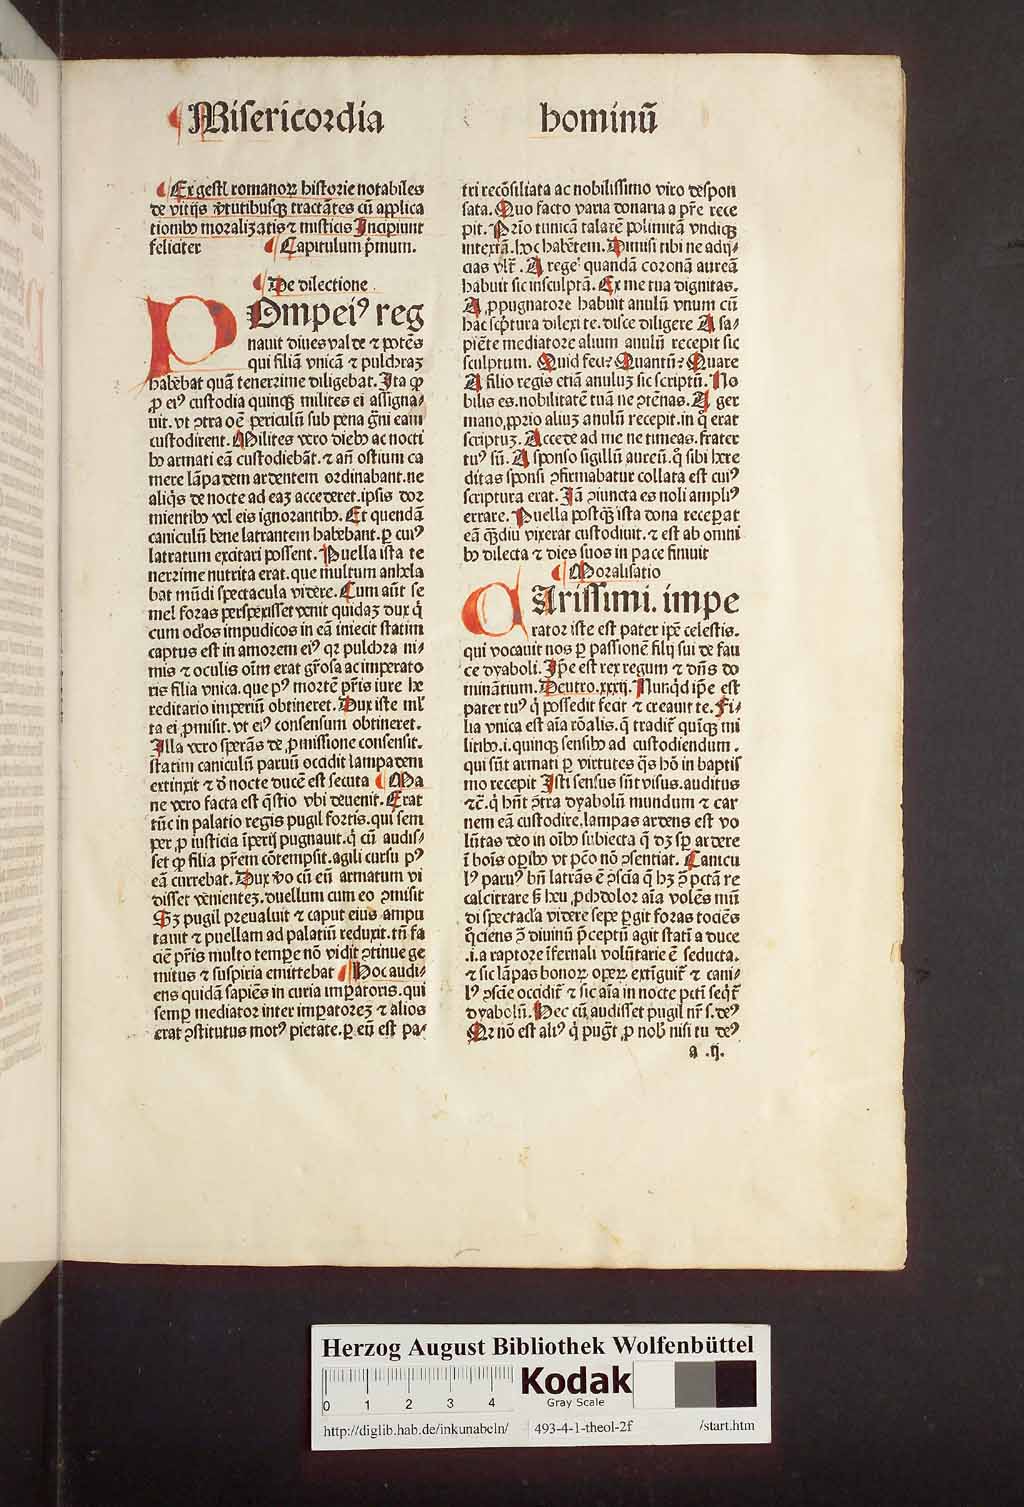 Misericordia hominū
Ex gestꝭ romanoꝝ historie notabiles
de vitijs v̓tutibusqꝫ tractātes cū applica
tionibꝰ moraliȝatis ⁊ misticis Incipiunt
feliciter Capitulum pͥmum.
De dilectione.
POmpeiꝰ reg
nauit diues valde ⁊ potēs
qui filiā vnicā ⁊ pulchraȝ
habebat quā tenerrime diligebat. Ita ꝙ
ꝓ eiꝰ custodia quinqꝫ milites ei assigna⸗
uit. vt ↄtra oē periculū sub pena gͣui eam
custodirent. Milites vero diebꝰ ac nocti
bꝰ armati eā custodiebāt. ⁊ añ ostium ca
mere lāpadem ardentem ordinabant. ne
aliqͥs de nocte ad eaȝ accederet. ipsis dor
mientibꝰ vel eis ignorantibꝰ. Et quendā
caniculū bene latrantem habebant. ꝑ cuiꝰ
latratum excitari possent. Puella ista te
nerrime nutrita erat. que multum anhela
bat mūdi spectacula videre. Cum aūt se
mel foras perspexisset venit quidaȝ dux qͥ
cum ocl̓os impudicos in eā iniecit statim
captus est in amorem eiꝰ qꝛ pulchra ni⸗
mis ⁊ oculis oīm erat grōsa ac imperato
ris filia vnica. que pꝰ mortē pr̄is iure he
reditario imperiū obtineret. Dux iste ml̓
ta ei ꝓmisit. vt eiꝰ consensum obtineret.
Illa vero sperās de ꝓmissione consensit.
statim caniculū paruū occidit lampadem
extinxit ⁊ d̄ nocte ducē est secuta Ma
ne vero facta est qͣstio vbi deuenit. Erat
tūc in palatio regis pugil fortis. qui sem
per ꝓ iusticia īperij pugnauit. qͥ cū audis⸗
set ꝙ filia pr̄em cōtempsit. agili cursu pꝰ
eā currebat. Dux v̓o cū eū armatum vi
disset venienteȝ. duellum cum eo ↄmisit
Sȝ pugil preualuit ⁊ caput eius ampu
tauit ⁊ puellam ad palatiū reduxit. tn̄ fa
ciē pr̄is multo tempe nō vidit ↄtinue ge
mitus ⁊ suspiria emittebat Hoc audi⸗
ens quidā sapiēs in curia imꝑatoris. qui
semꝑ mediator inter imꝑatoreȝ ⁊ alios
erat ↄstitutus motꝰ pietate. ꝑ eū est pa⸗
tri recōsiliata ac nobilissimo viro despon
sata. Quo facto varia donaria a pr̄e rece
pit. Pͥo tunicā talarē polimitā vndiqꝫ
intextā. hoc habētem. Dimisi tibi ne adij⸗
cias vlt̄. A rege quandā coronā aureā
habuit sic insculptā. Ex me tua dignitas.
A ꝓpugnatore habuit anulū vnum cū
hac scp̄tura dilexi te. disce diligere A sa⸗
piēte mediatore alium anulū recepit sic
sculptum. Quid feci? Quantū? Quare
A filio regis etiā anuluȝ sic scriptū. No
bilis es. nobilitatē tuā ne ↄtēnas. A ger
mano ꝓprio aliuȝ anulū recepit. in qͦ erat
scriptuȝ. Accede ad me ne timeas. frater
tuꝰ sū. A sponso sigillū aureū. qͦ sibi here
ditas sponsi ↄfirmabatur collata est cuiꝰ
scriptura erat. Iā ↄiuncta es noli ampliꝰ
errare. Puella postqͣ ista dona receꝑat
eā qͣdiu vixerat custodiuit. ⁊ est ab omni
bꝰ dilecta ⁊ dies suos in pace finiuit
Moralisatio
CArissimi. impe
rator iste est pater ip̄e celestis.
qui vocauit nos ꝑ passionē filij sui de fau
ce dyaboli. Ip̄e est rex regum ⁊ dn̄s do
minātium. Deutro. xxxij. Nunqͥd ip̄e est
pater tuꝰ qͥ possedit fecit ⁊ creauit te. Fi⸗
lia vnica est aīa rōalis. q̄ tradit̄ quīqꝫ mi
litibꝰ. i. quinqꝫ sensibꝰ ad custodiendum.
qui sūt armati ꝑ virtutes qͣs hō in baptis
mo recepit Isti sensus sūt visus. auditus
⁊c̄. qͥ hn̄t ↄtra dyabolū mundum ⁊ car
nem eā custodire. lampas ardens est vo
lūtas deo in oībꝰ subiecta q̄ dȝ sꝑ ardere
ī bois oꝑibꝰ vt pc̄o nō ↄsentiat. Canicu
lꝰ paruꝰ bn̄ latrās ē ↄscīa q̄ hȝ ↄ pc̄tā re
calcitrare sꝫ heu ꝓchdolor aīa volēs mū
di spectacl̓a videre sepe ꝑgit foras tociēs
qͦciens ↄ diuinū p̄ceptū agit statī a duce
.i. a raptore īfernali volūtarie ē seducta.
⁊ sic lāpas bonoꝝ opeꝝ extīguit̄ ⁊ cani⸗
lꝰ ↄscīe occidit̄ ⁊ sic aīa in nocte pctī seqͥt̄
dyabolū. Hec cū audisset pugil nr̄ s. deꝰ
Qꝛ nō est aliꝰ qͥ pugt̄ ꝓ nobꝭ nisi tu deꝰ
a .ij.
Herzog August Bibliothek Wolfenbüttel
0 1 2 3 4
Kodak
Gray Scale
http://diglib.hab.de/inkunabeln/ 493-4-1-theol-2f /start.htm